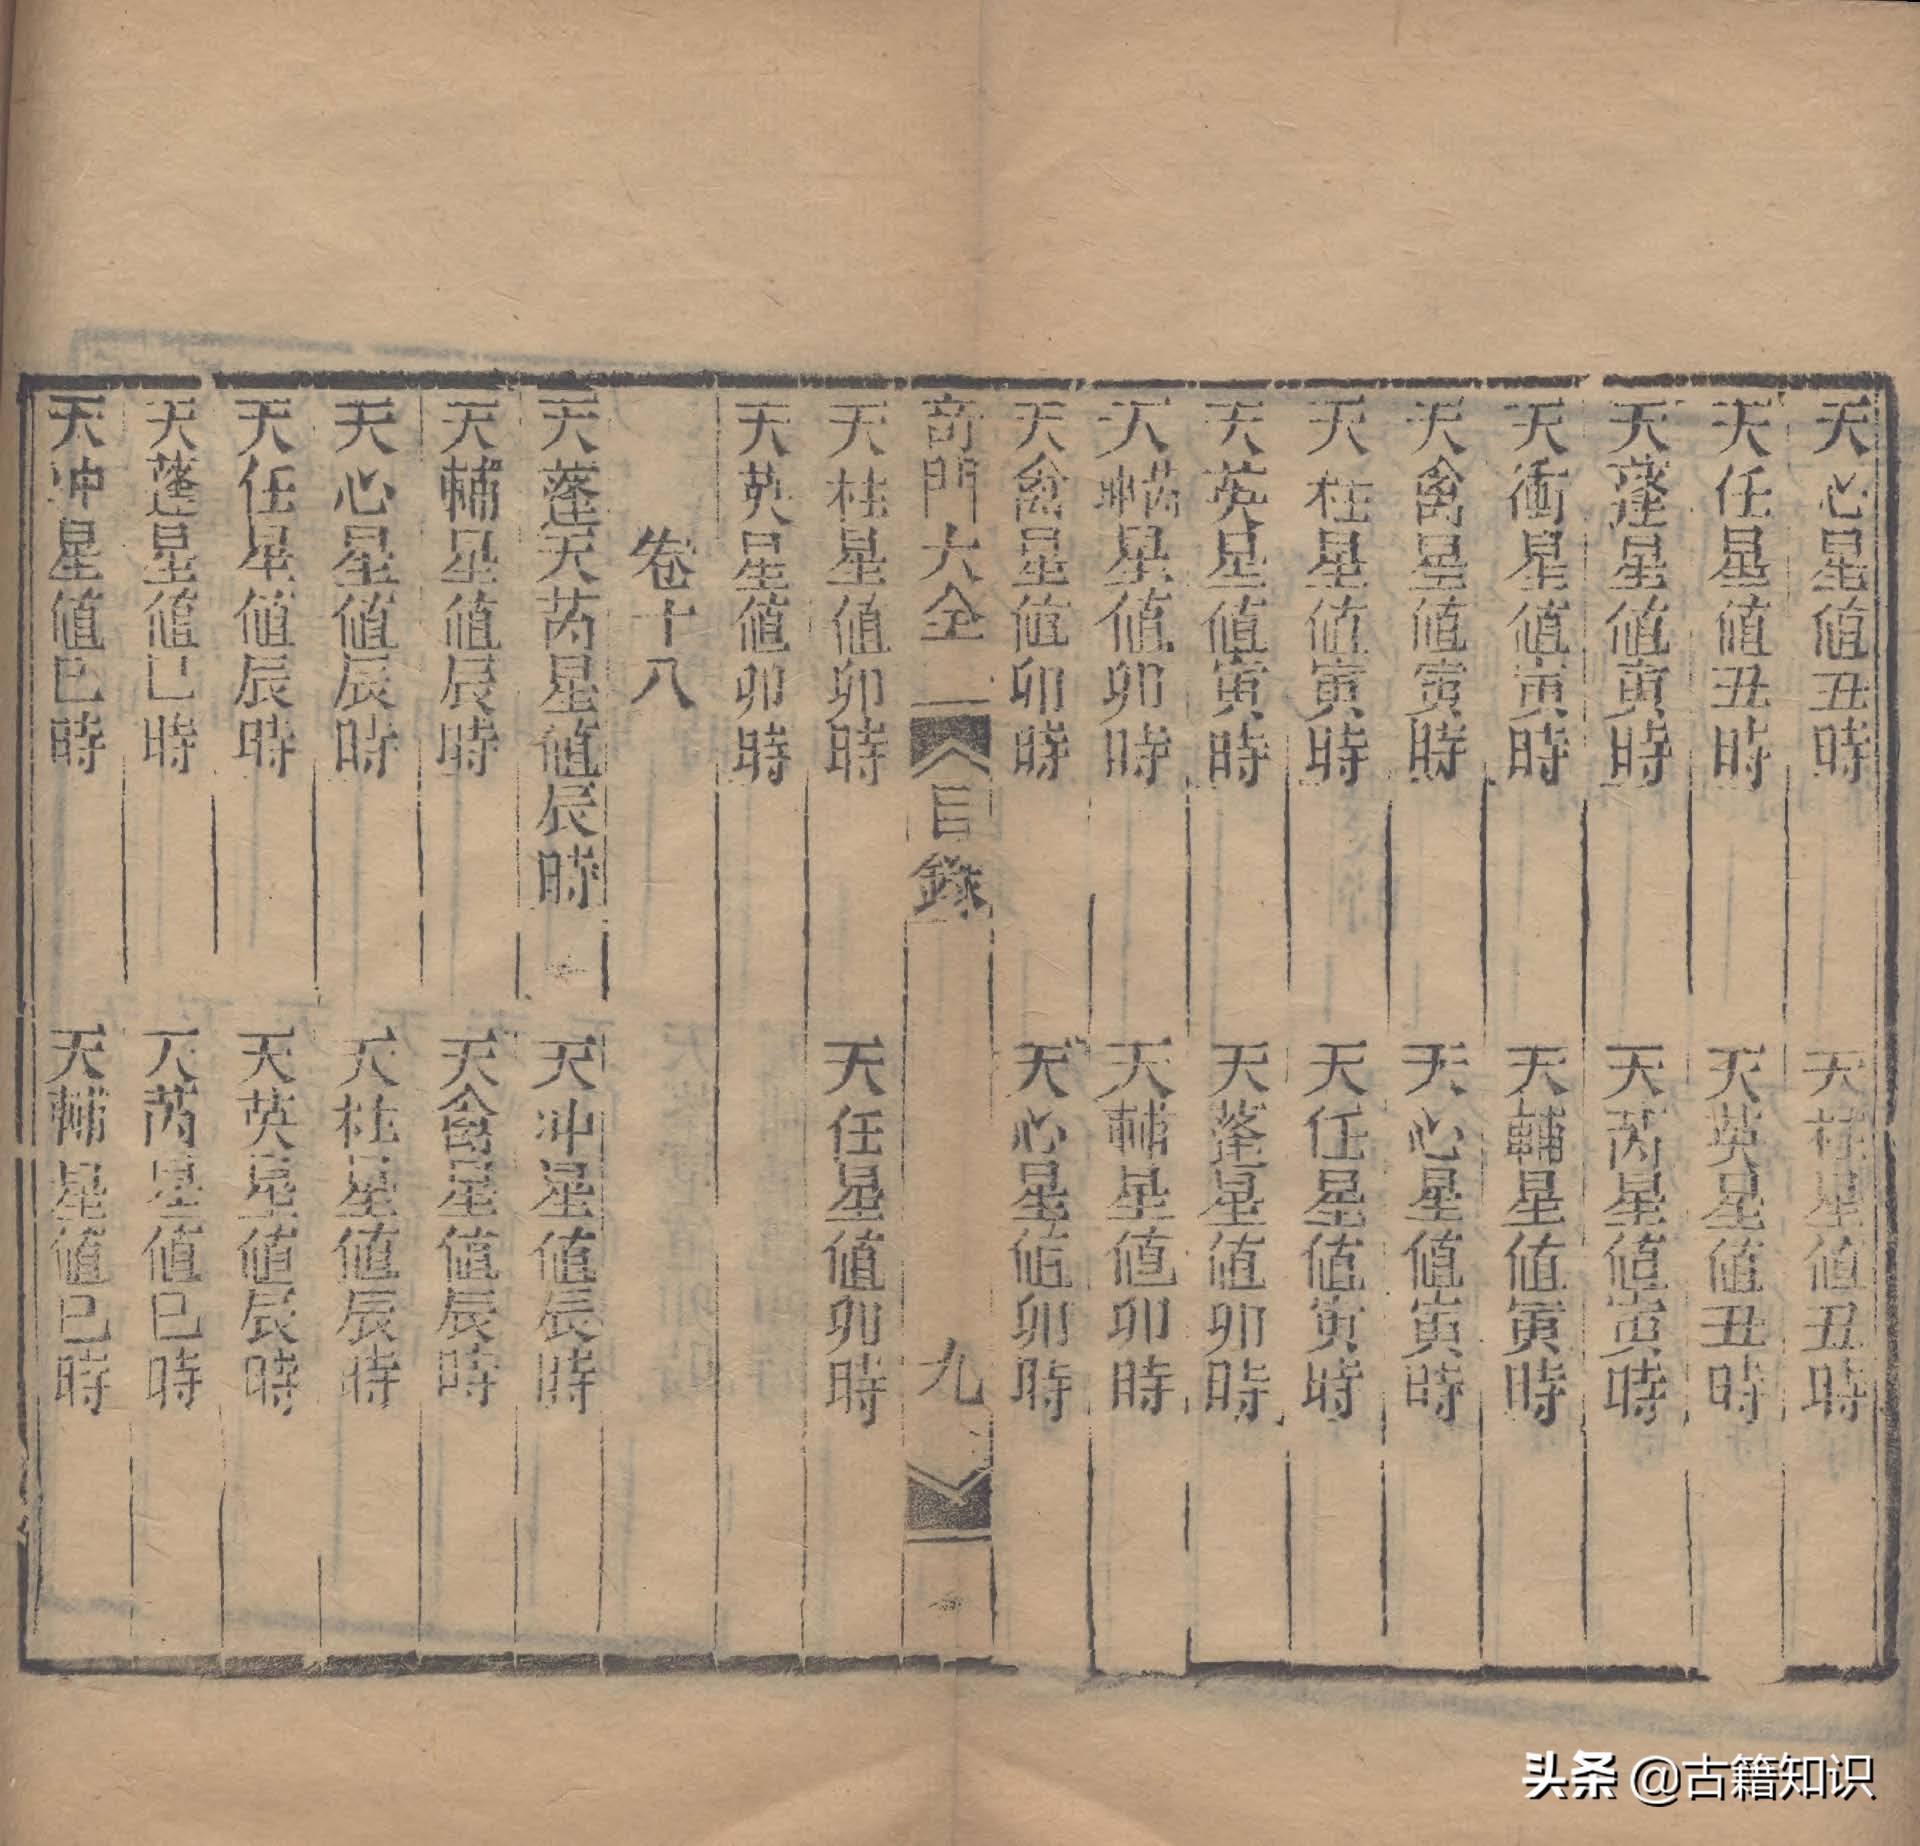 天心星值丑時 天柱星值丑時
天任星值丑時 天英星值丑時
天蓬星值寅時 天芮星值寅時
天衝星值寅時 天輔星值寅時
天禽星值寅時 天心星值寅時
天柱星值寅時 天任星值寅時
天英星值寅時 天蓬星值卯時
天星值卯時 天輔星值卯時
天禽星值卯時 天心星值卯時
奇門大全 目錄 九
天柱星值卯時 天任星值卯時
天英星值卯時
卷十八
天蓬天芮星值辰時 天冲星值辰時
天輔星值辰時 天禽星值辰時
天心星值辰時 天柱星值辰時
天任星值辰時 天英星值辰時
天蓬星值巳時 天芮星值巳時
天冲星值巳時 天輔星值巳時
头条 @古籍知识